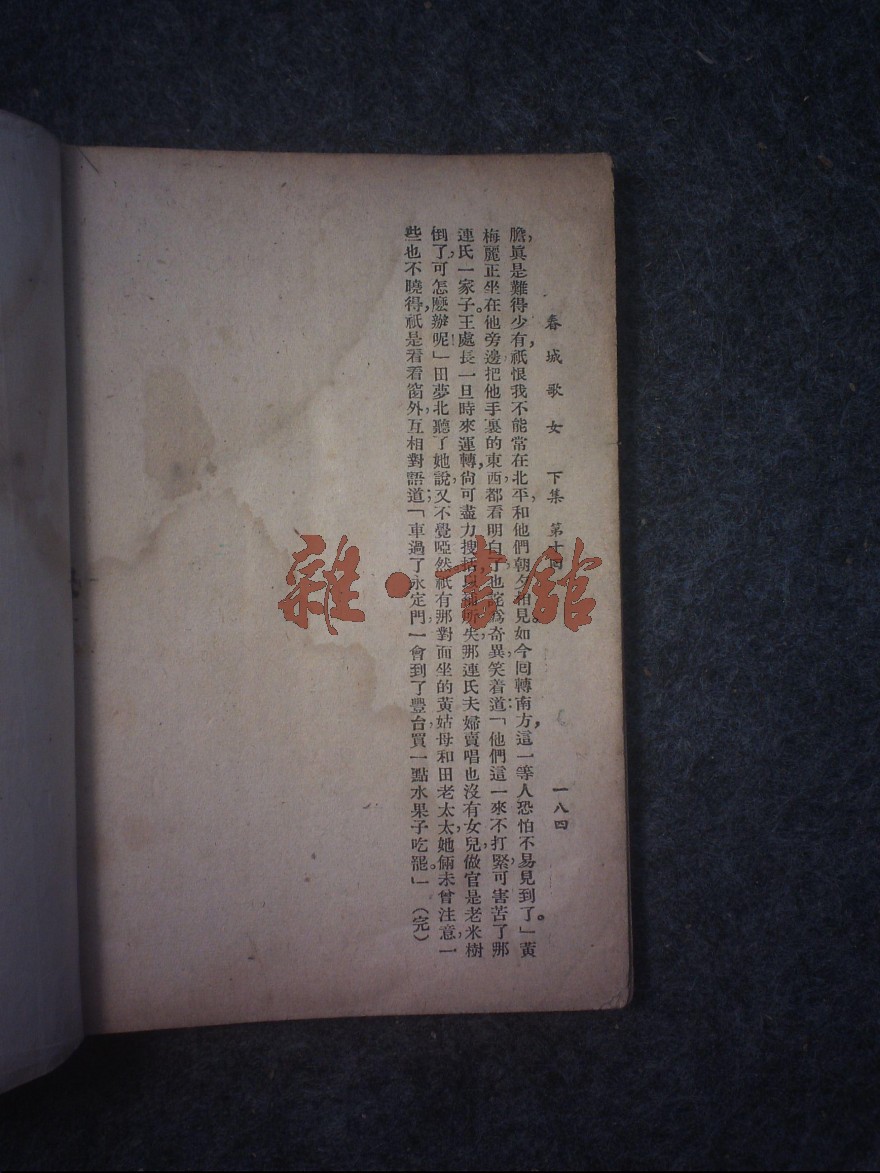 春城歌女 下集 第十回 一八四
膽，眞是難得少有，祇恨我不能常在北平，和他們朝夕相見。如今囘轉南方，這一等人恐怕不易見到了。」黃
梅麗正坐在他旁邊，把他手裏的東西都看明白了，也詫爲奇異，笑着道：「他們這一來不打緊，可害苦了那
連氏一家子。王處長一旦時來運轉，尙可盡力搜括，以補所失，那連氏夫婦賣唱也沒有女兒，做官是老米樹
倒了，可怎麽辦呢！」田夢北聽了她說，又不覺啞然。祇有那對面坐的黃姑母和田老太太，她倆未曾注意，一
些也不曉得，祇是看看窗外，互相對語道：「車過了永定門，一會到了豐台，買一點水果子吃罷。」（完）
雜·書館